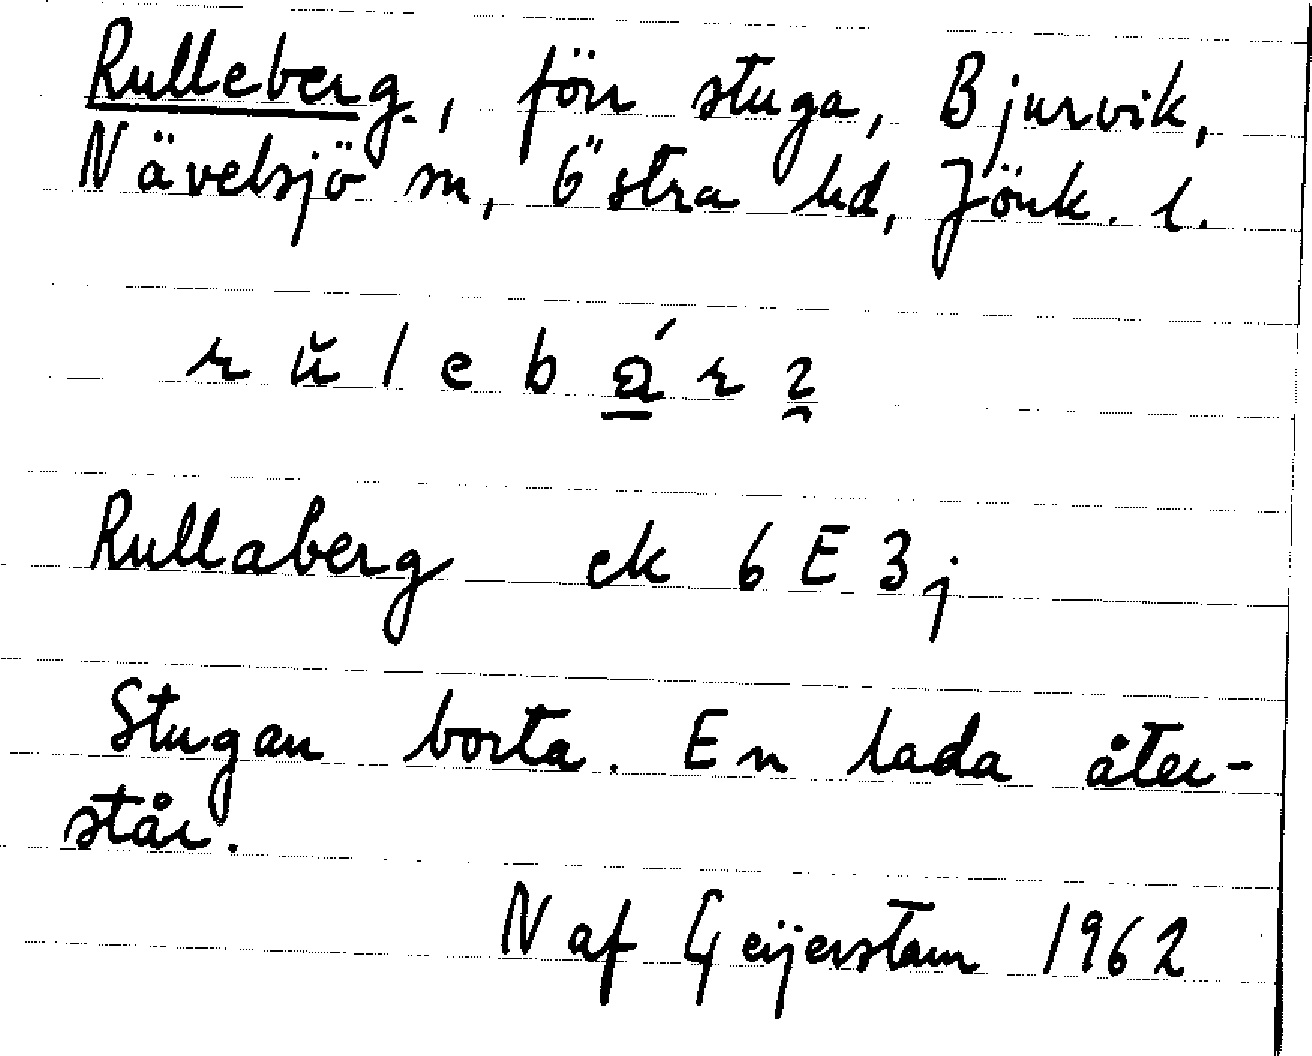 Rulleberg, förr stuga, Bjurvik,
Nävelsjö sn, Östra hd, Jönk. l.
Rullaberg ek 6 E 3 j
Stugan borta. En lada åter-
står.
N af Geijerstam 1962